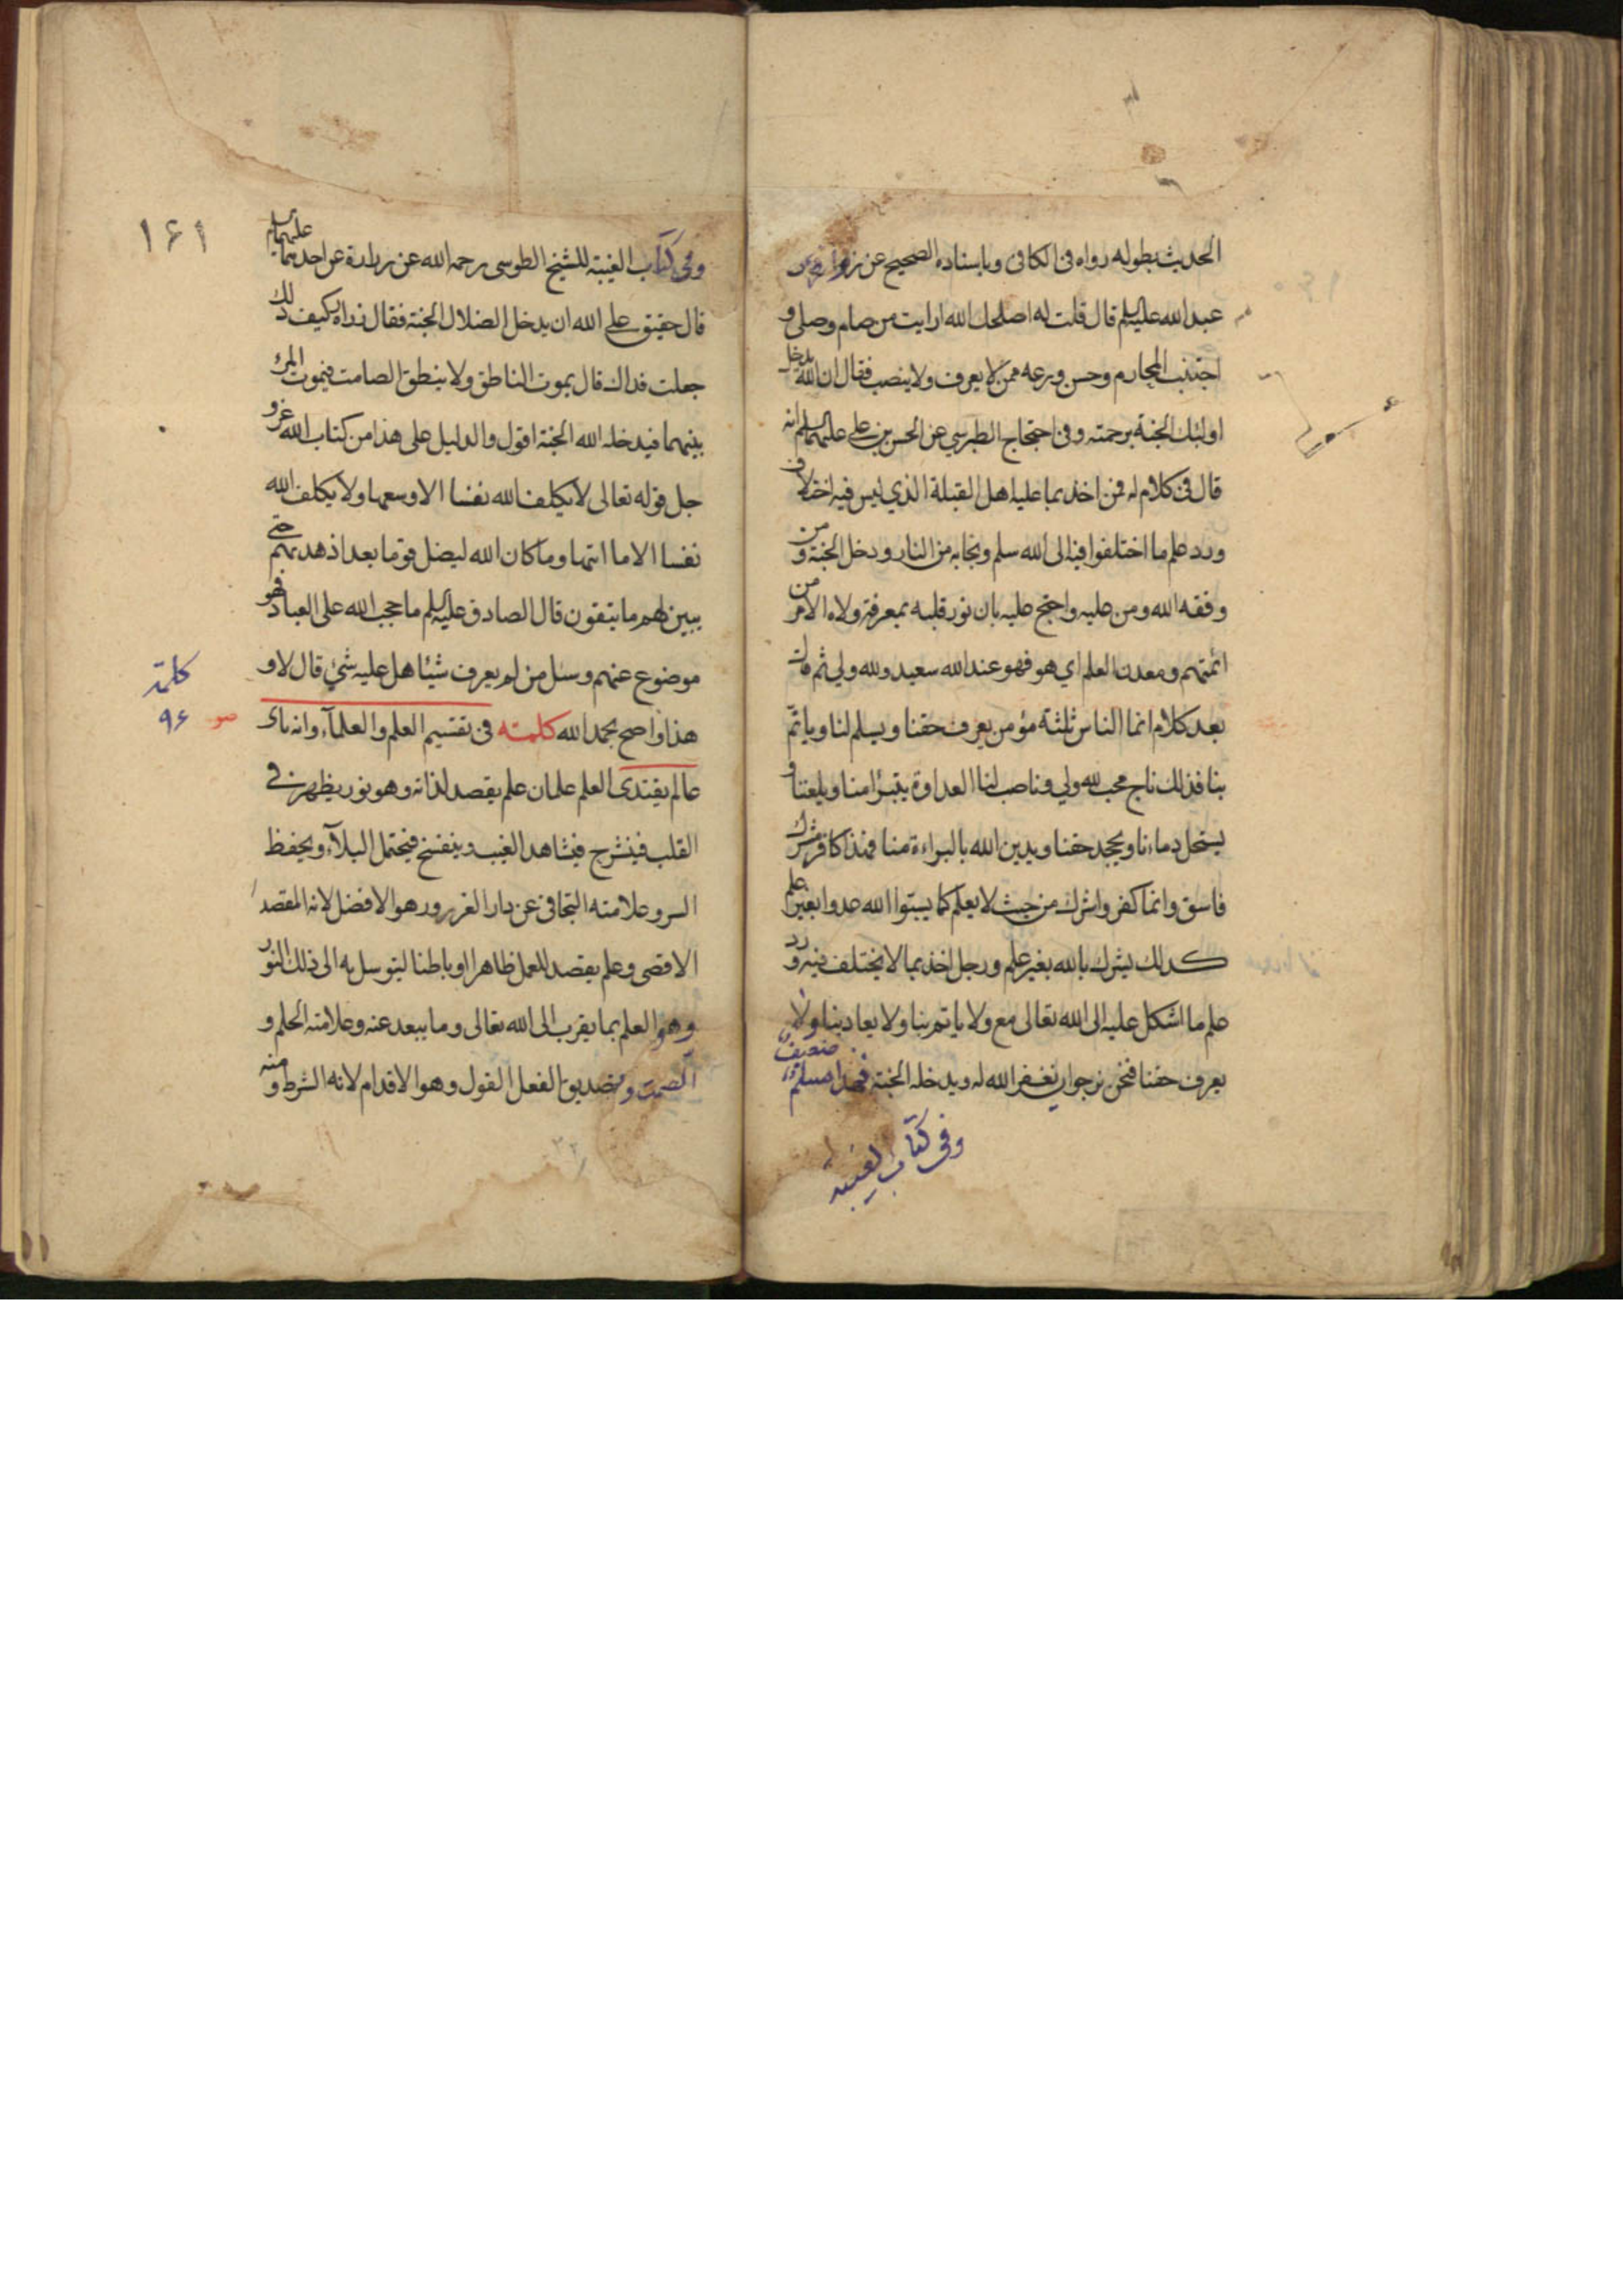 الحديث بطوله رواه فى الكافى وباسناده الصحيح عن زرارة عن ابى
عبد الله عليه السلم قال قلت له اصلحك الله ارايت من صام وصلى و
اجتنب المحارم وحسن ورعه ممن لا يعرف ولا ينصب فقال ان الله يدخل
اولئك الجنة برحمته وفى احتجاج الطبرسي عن الحسن بن على عليهما السلم انه
قال فى كلام له فمن اخذ بما عليه اهل القبلة الذي ليس فيه اختلاف
ورد علم ما اختلفوا فيه الى الله سلم ونجا به من النار ودخل الجنة ومن
وفقه الله ومن عليه واحتج عليه بان نور قلبه بمعرفة ولاة الامر من
ائمتهم ومعدن العلم اي هو فهو عند الله سعيد ولله ولي ثم قال
بعد كلام انما الناس ثلثة مؤمن يعرف حقنا ويسلم لنا وياتم
بنا فذلك ناج محب لله ولي وناصب لنا العداوة يتبرأ منا ويلعننا و
يستحل دماءنا ويجحد حقنا ويدين الله بالبراءة منا فهذا كافر مشرك
فاسق وانما كفر واشرك من حيث لا يعلم كما يسبوا الله عدوا بغير علم
كذلك يشرك بالله بغير علم ورجل اخذ بما لا يختلف فيه ورد
علم ما اشكل عليه الى الله تعالى مع ولا ياتم بنا ولا يعادينا ولا
يعرف حقنا فنحن نرجو ان يغفر الله له ويدخله الجنة فهذا مسلم ضعيف
وفى كتاب الغيبه
١٦١
وفى كتاب الغيبة للشيخ الطوسى رحمه الله عن زرارة عن احدهما عليهما السلم
قال حقيق على الله ان يدخل الضلال الجنة فقال زراه كيف ذلك
جعلت فداك قال يموت الناطق ولا ينطق الصامت فيموت المرء
بينهما فيدخله الله الجنة اقول والدليل على هذا من كتاب الله عز و
جل قوله تعالى لا يكلف الله نفسا الا وسعها ولا يكلف الله
نفسا الا ما اتيها وما كان الله ليضل قوما بعد اذ هديهم حتى
يبين لهم ما يتقون قال الصادق عليه السلم ما حجب الله على العباد فهو
موضوع عنهم وسئل من لم يعرف شيئا هل عليه شئ قال لا و
هذا واضح بحمد الله كلمته فى تقسيم العلم والعلمآء وانه باى
كلمة
٩۶
عالم يقتدى العلم علمان علم يقصد لذاته وهو نور يظهر فى
القلب فينشرح فيشاهد الغيب وينفسخ فيحتمل البلآء ويحفظ
السر وعلامته التجافى عن دار الغرور وهو الافضل لانه المقصد
الاقصى وعلم يقصد للعمل ظاهرا او باطنا ليتوسل به الى ذلك النور
وهو العلم بما يقرب الى الله تعالى وما يبعد عنه وعلامته الحلم و
الصمت وتصديق الفعل القول وهو الاقدام لانه الشرط ومنه